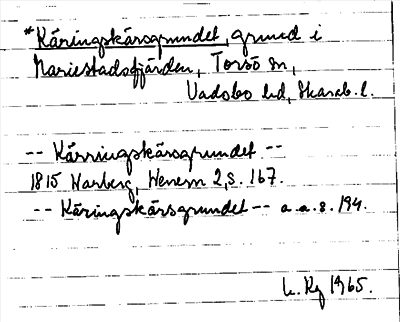 *Käringskärsgrundet, grund i
Mariestadsfjärden, Torsö sn,
Vadsbo hd, Skarab. l.
-- Kärringskärsgrundet --
1815 Warberg, Wenern 2, s. 167.
-- Käringskärsgrundet -- a.a.s. 194.
1965.